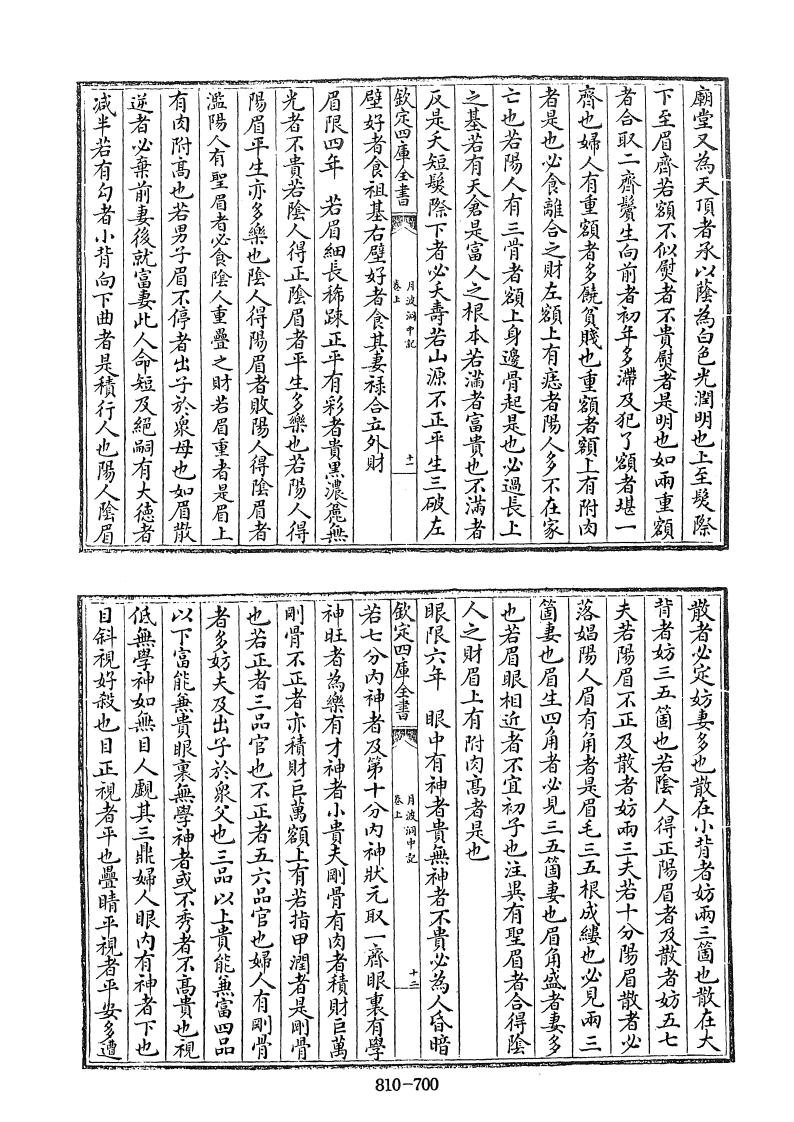 廟堂又為天頂者承以蔭為白色光潤明也上至髮際
下至眉齊若額不似熨者不貴熨者是明也如兩重額
者合取二齊鬢生向前者初年多滯及犯了額者堪一
齊也婦人有重額者多饒貧賤也重額者額上有附肉
者是也必食離合之財左額上有痣者陽人多不在家
亡也若陽人有三骨者額上身邊骨起是也必過長上
之基若有天倉是富人之根本若滿者富貴也不滿者
反是夭短髮際下者必夭壽若山源不正平生三破左
欽定四庫全書
月波洞中記
卷上
十一
壁好者食祖基右壁好者食其妻禄合立外財
眉限四年　若眉細長稀踈正平有彩者貴黒濃麄無
光者不貴若陰人得正陰眉者平生多樂也若陽人得
陽眉平生亦多樂也陰人得陽眉者敗陽人得陰眉者
濫陽人有聖眉者必食陰人重疊之財若眉重者是眉上
有肉附髙也若男子眉不停者出子於衆母也如眉散
逆者必棄前妻後就富妻此人命短及絕嗣有大徳者
減半若有勾者小背向下曲者是積行人也陽人陰眉
散者必定妨妻多也散在小背者妨兩三箇也散在大
背者妨三五箇也若陰人得正陽眉者及散者妨五七
夫若陽眉不正及散者妨兩三夫若十分陽眉散者必
落娼陽人眉有角者是眉毛三五根成縷也必見兩三
箇妻也眉生四角者必見三五箇妻也眉角盛者妻多
也若眉眼相近者不宜初子也注異有聖眉者合得陰
人之財眉上有附肉髙者是也
眼限六年　眼中有神者貴無神者不貴必為人昏暗
欽定四庫全書
月波洞中記
卷上
十二
若七分內神者及第十分內神狀元取一齊眼裏有學
神旺者為樂有才神者小貴夫剛骨有肉者積財巨萬
剛骨不正者亦積財巨萬額上有若指甲潤者是剛骨
也若正者三品官也不正者五六品官也婦人有剛骨
者多妨夫及出子於衆父也三品以上貴能兼富四品
以下富能兼貴眼裏無學神者或不秀者不髙貴也視
低無學神如無目人覰其三鼎婦人眼內有神者下也
目斜視好殺也目正視者平也疊睛平視者平安多遭
810-700